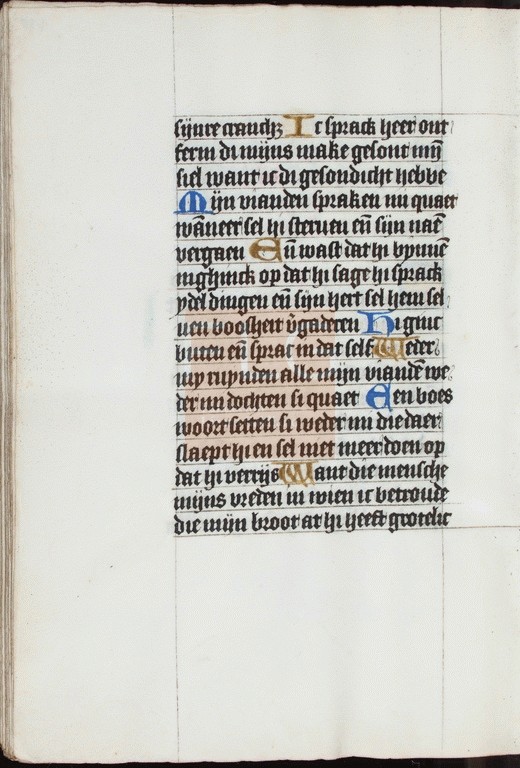 sijnre cranchz Ic sprack heer ont
ferm di mijns make gesont mȳ
siel want ic di gesondicht hebbe
Mijn vianden spraken mi quaet
wāneer sel hi steruen eñ sijn naē
vergaen Eñ wast dat hi bynnē
inghinck op dat hi sage hi sprack
ydel dingen eñ sijn hert sel hem sel
uen boosheit v̄gaderen Hi ginc
buten eñ sprac in dat self Weder
my ruynden alle mijn viandē we
der mi dochten si quaet Een boes
woort setten si weder mi die daer
slaept hi en sel niet meer doen op
dat hi verrijs Want die mensche
mijns vreden in wien ic betroude
die mijn broot at hi heeft grotelic